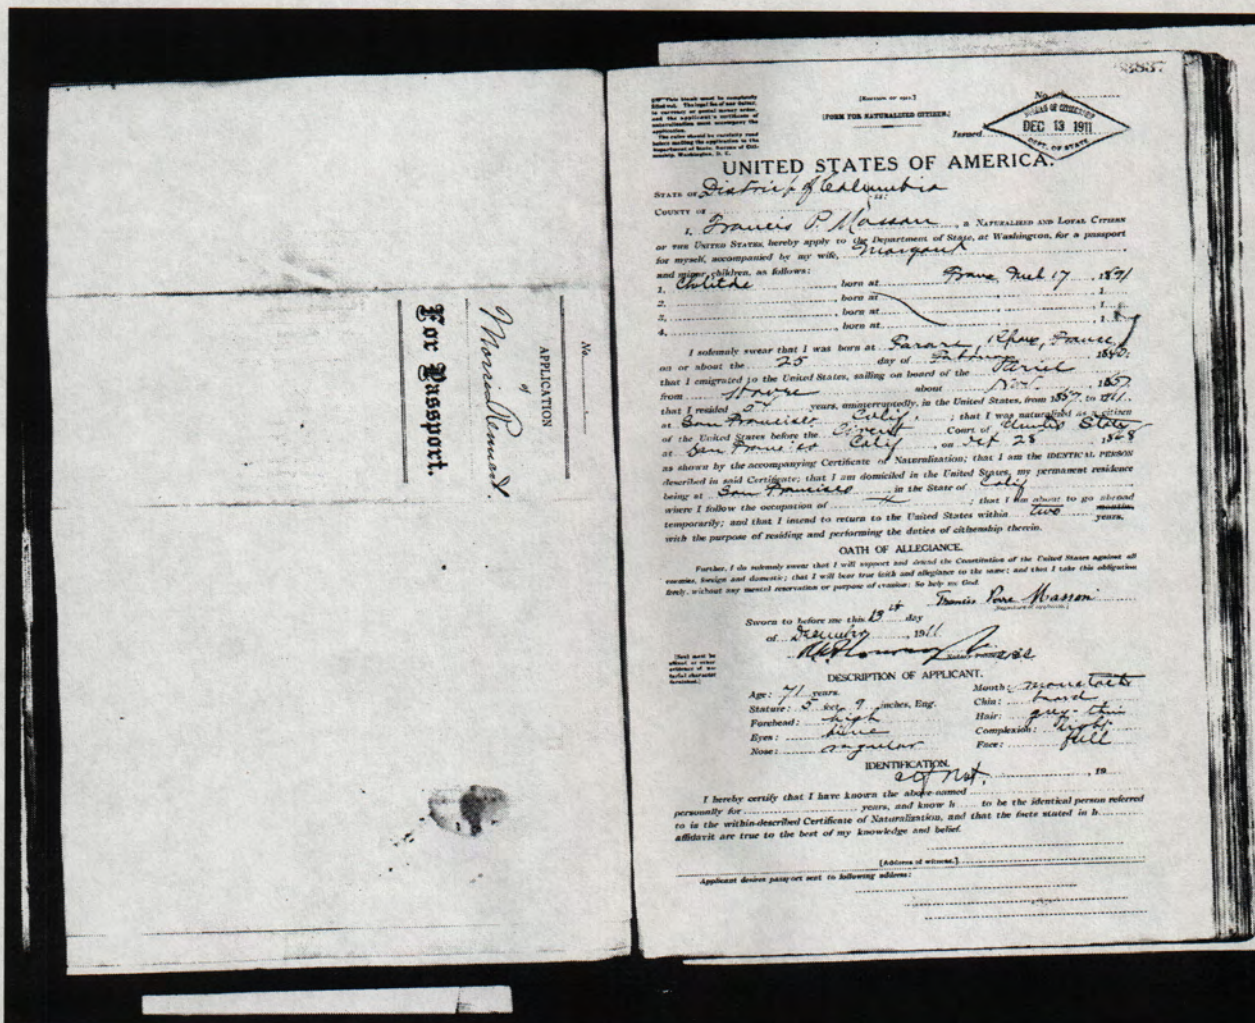 No.
APPLICATION
of
Morris Rennard.
For Passport.
3837
[EDITION OF 1911.]
[FORM FOR NATURALIZED CITIZEN.]
No.
Issued
BUREAU OF CITIZENSHIP
DEC 13 1911
DEPT. OF STATE
UNITED STATES OF AMERICA.
STATE OF District of Columbia
COUNTY OF ss:
I, Francis P. Masson, a NATURALIZED AND LOYAL CITIZEN
OF THE UNITED STATES, hereby apply to the Department of State, at Washington, for a passport
for myself, accompanied by my wife,
and minor children, as follows:
1. born at 17, 1
2. , born at , 1
3. , born at , 1
4. , born at , 1
I solemnly swear that I was born at France,
on or about the 25 day of
that I emigrated to the United States, sailing on board of the
from Havre about Nov. 1857
that I resided years, uninterruptedly, in the United States, from 1857 to 1911.
at San Francisco Calif. ; that I was naturalized as a citizen
of the United States before the Circuit Court of United States
at San Francisco Calif on 28 1868
as shown by the accompanying Certificate of Naturalization; that I am the IDENTICAL PERSON
described in said Certificate; that I am domiciled in the United States, my permanent residence
being at San Francisco in the State of Calif
where I follow the occupation of ; that I am about to go abroad
temporarily; and that I intend to return to the United States within two months, years,
with the purpose of residing and performing the duties of citizenship therein.
OATH OF ALLEGIANCE.
Further, I do solemnly swear that I will support and defend the Constitution of the United States against all
enemies, foreign and domestic; that I will bear true faith and allegiance to the same; and that I take this obligation
freely, without any mental reservation or purpose of evasion: So help me God.
Masson
[Signature of applicant.]
Sworn to before me this 13th day
of December, 1911
Notary Public
DESCRIPTION OF APPLICANT.
Age: 71 years. Mouth: moustache
Stature: 5 feet 9 inches, Eng. Chin: beard
Forehead: high Hair: grey-thin
Eyes: Complexion: light
Nose: regular Face: full
IDENTIFICATION.
, 19
I hereby certify that I have known the above-named
personally for years, and know h to be the identical person referred
to in the within-described Certificate of Naturalization, and that the facts stated in h
affidavit are true to the best of my knowledge and belief.
[Address of witness.]
Applicant desires passport sent to following address: